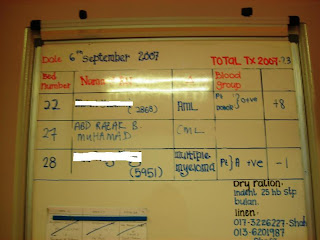 Date 6th September 2007
TOTAL TX 2007 - 23
Bed Number
Blood group
22
(2868)
AML
Pt
Donor } O+ve
+8
27
ABD RAZAK B. MUHAMAD.
CML
28
(5951)
multiple myeloma
Pt } A +ve
-1
Dry ration:
25 hb stp bulan.
linen:
017-3226227-Shah
013-6201987